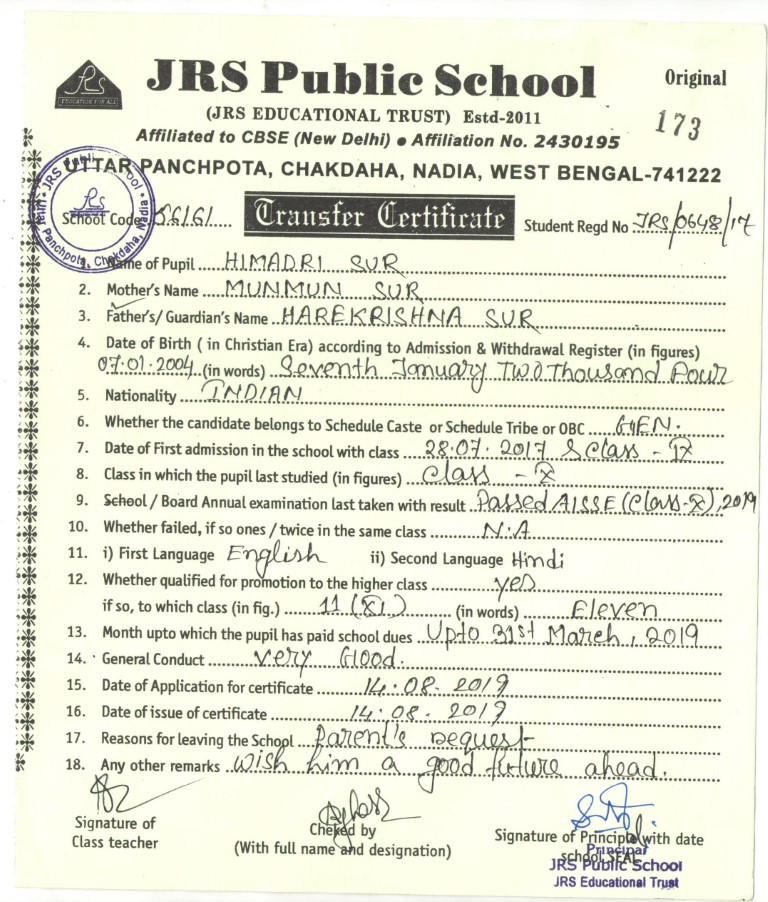 JRS
EDUCATION FOR ALL
JRS Public School
Original
(JRS EDUCATIONAL TRUST) Estd-2011
173
Affiliated to CBSE (New Delhi) ● Affiliation No. 2430195
UTTAR PANCHPOTA, CHAKDAHA, NADIA, WEST BENGAL-741222
JRS Public School • Uttar Panchpota, Chakdaha, Nadia •
School Code 56161 Transfer Certificate Student Regd No JRS/0648/17
1. Name of Pupil HIMADRI SUR
2. Mother's Name MUNMUN SUR
3. Father's/ Guardian's Name HAREKRISHNA SUR
4. Date of Birth ( in Christian Era) according to Admission & Withdrawal Register (in figures)
07.01.2004 (in words) Seventh January Two Thousand Four
5. Nationality INDIAN
6. Whether the candidate belongs to Schedule Caste or Schedule Tribe or OBC GEN.
7. Date of First admission in the school with class 28.07.2017 & Class - IX
8. Class in which the pupil last studied (in figures) Class - X
9. School / Board Annual examination last taken with result Passed AISSE (Class-X), 2019
10. Whether failed, if so ones / twice in the same class N.A
11. i) First Language English ii) Second Language Hindi
12. Whether qualified for promotion to the higher class yes
if so, to which class (in fig.) 11 (XI) (in words) Eleven
13. Month upto which the pupil has paid school dues Upto 31st March, 2019
14. General Conduct Very Good.
15. Date of Application for certificate 14.08.2019
16. Date of issue of certificate 14.08.2019
17. Reasons for leaving the School Parent's request
18. Any other remarks wish him a good future ahead.
Signature of
Class teacher
Cheked by
(With full name and designation)
Signature of Principal with date
school SEAL
Principal
JRS Public School
JRS Educational Trust